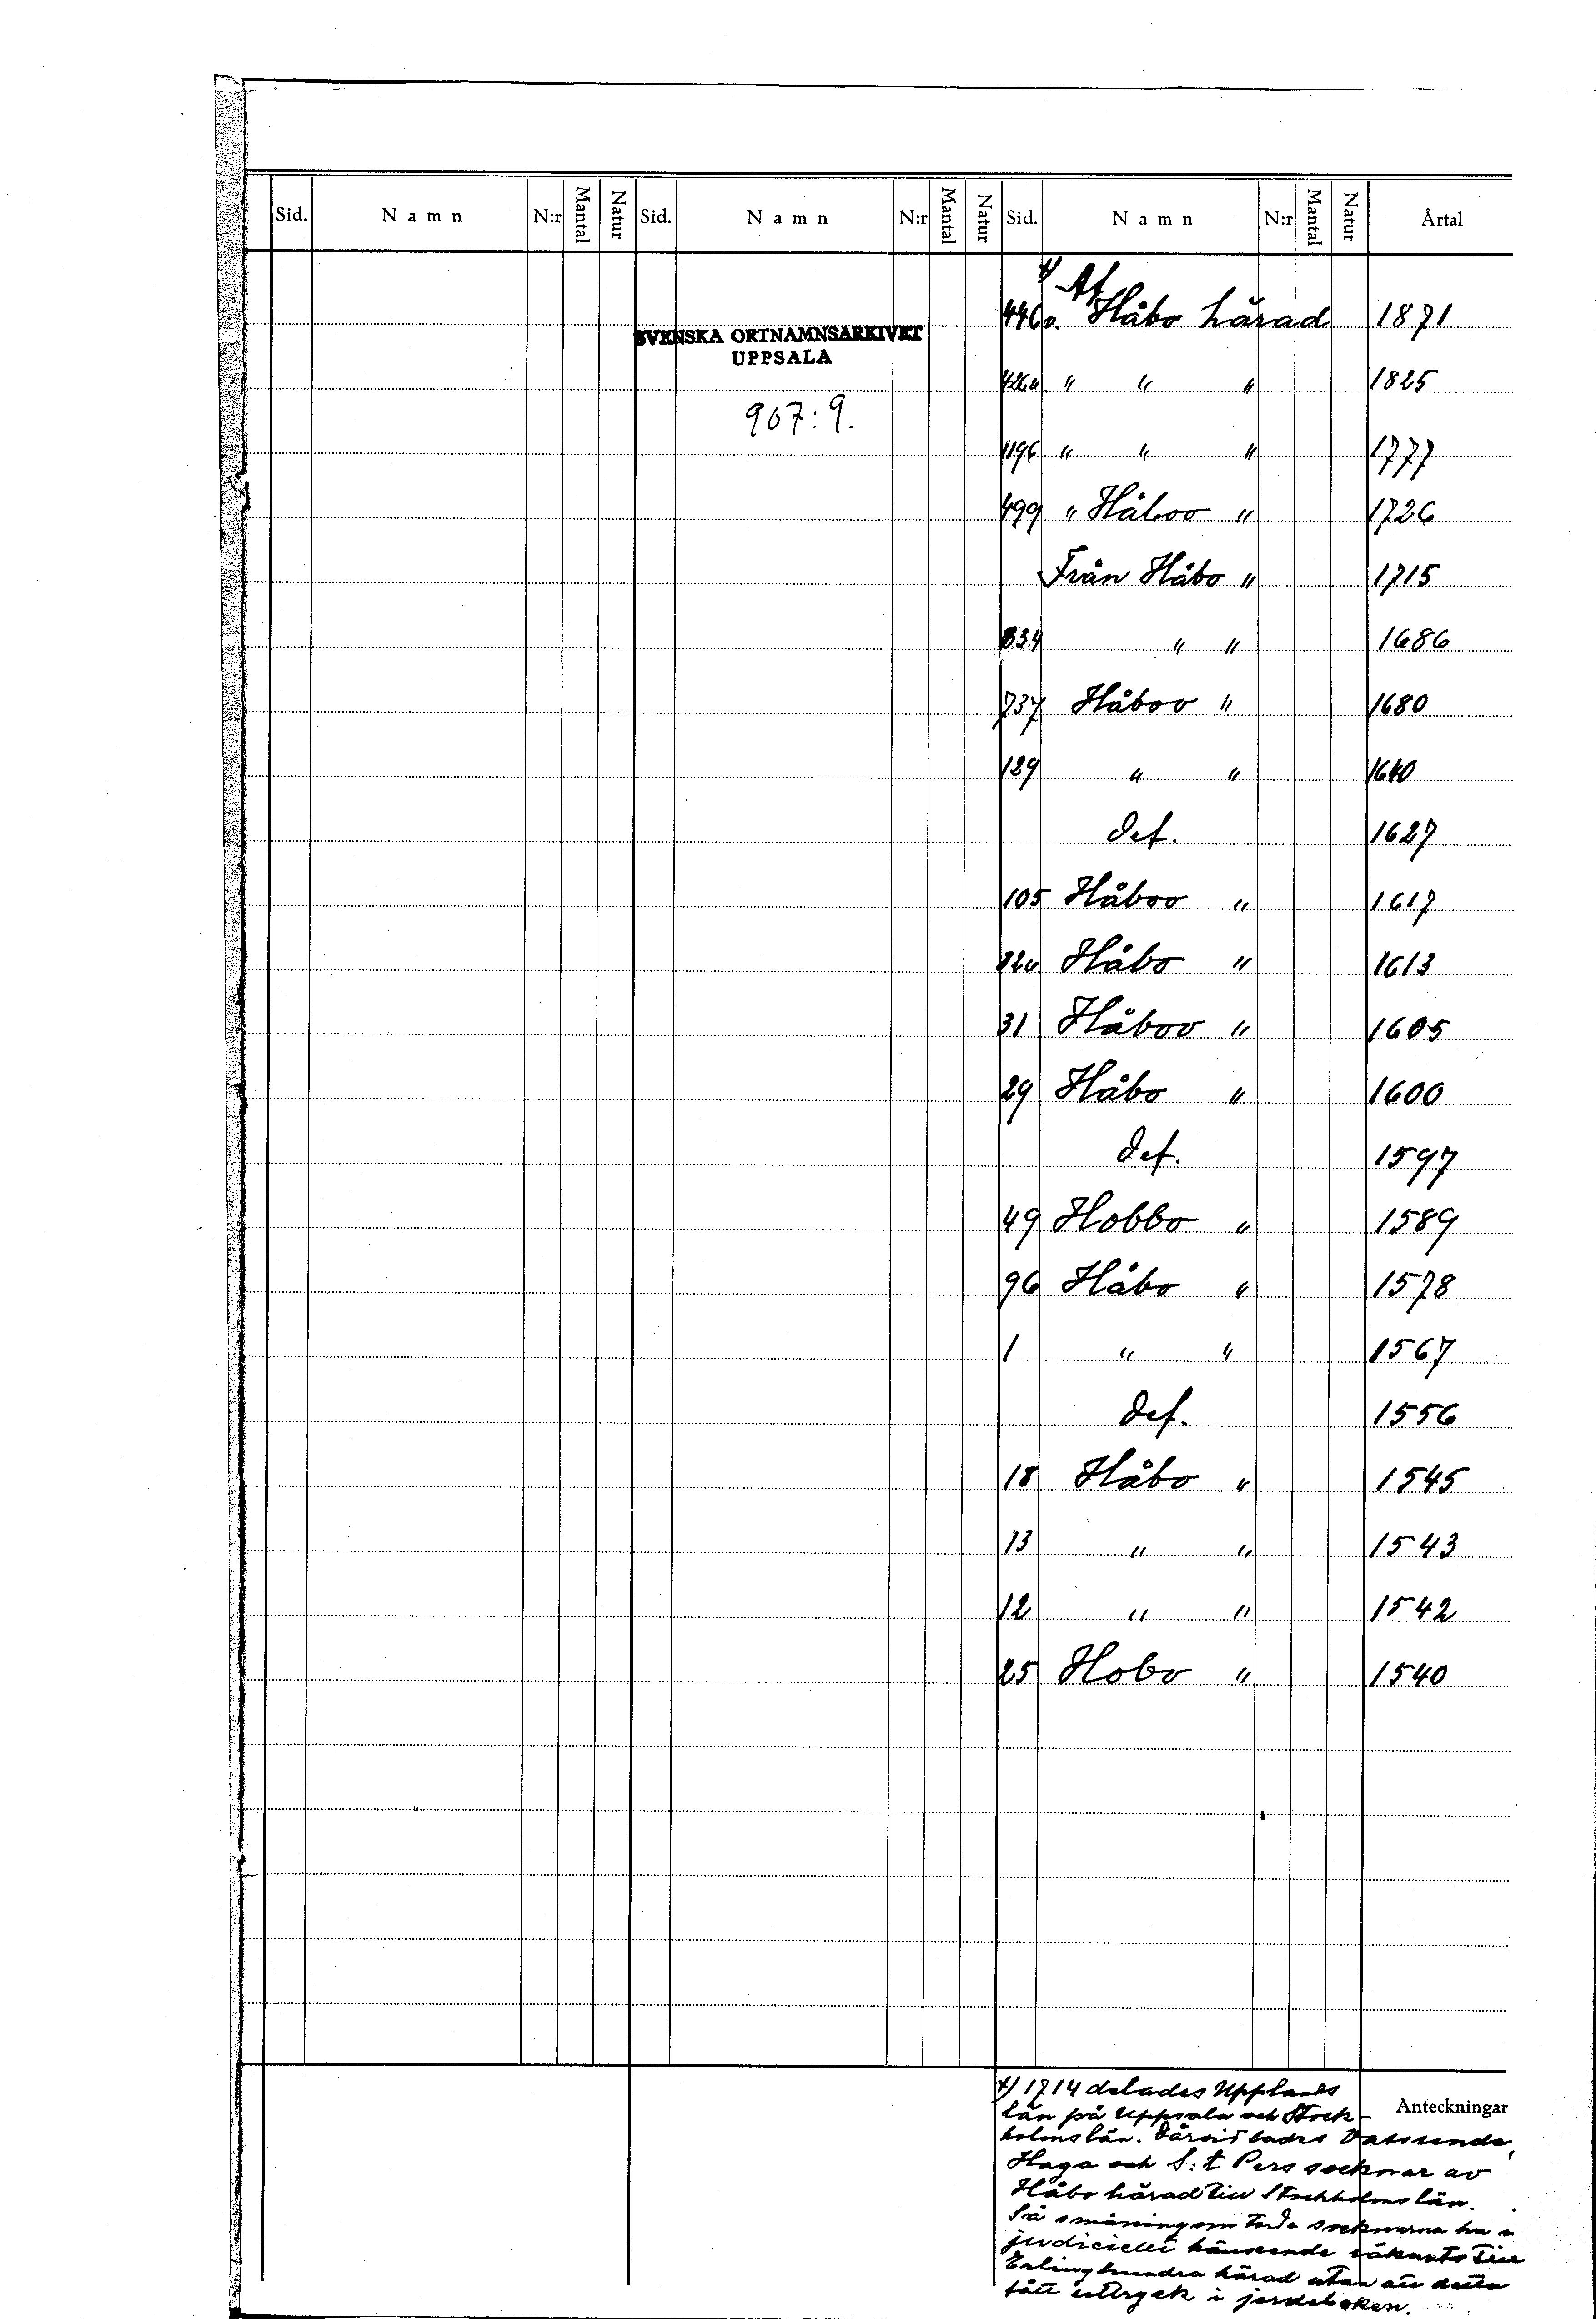 Sid. Namn N:r Mantal Natur Sid. Namn N:r Mantal Natur Sid. Namn N:r Mantal Natur Årtal
x) Af
446a. Håbo härad 1871
SVENSKA ORTNAMNSARKIVET
UPPSALA
426a. " " " 1825
907:9.
1196 " " " 1777
499 " Håboo " 1726
Från Håbo " 1715
834 " " 1686
737 Håboo " 1680
129 " " 1640
def. 1627
105 Håboo " 1617
Håbo " 1613
31 Håboo " 1605
29 Håbo " 1600
def. 1597
49 Hobbo " 1589
96 Håbo " 1578
1 " " 1567
def. 1556
18 Håbo " 1545
13 " " 1543
12 " " 1542
25 Hobo " 1540
x) 1714 delades Upplands
Anteckningar
län på Uppsala och Stock-
holms län. Därvid lades Vassunda,
Haga och S:t Pers socknar av
Håbo härad till Stockholms län.
Så småningom torde socknarna ha i
judiciellt hänseende räknats till
Erlinghundra härad utan att detta
fått uttryck i jordeboken.